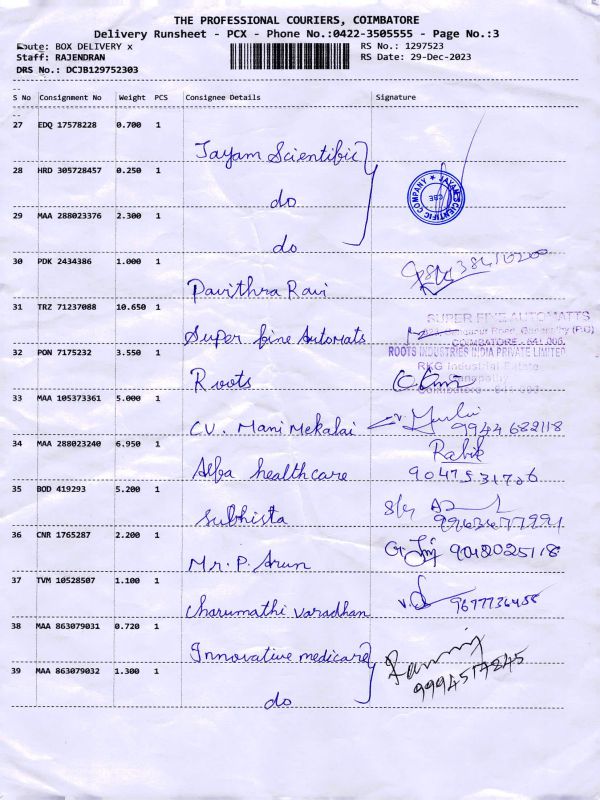 THE PROFESSIONAL COURIERS, COIMBATORE
Delivery Runsheet - PCX - Phone No.:0422-3505555 - Page No.:3
Route: BOX DELIVERY x RS No.: 1297523
Staff: RAJENDRAN RS Date: 29-Dec-2023
DRS No.: DCJB129752303
S No Consignment No Weight PCS Consignee Details Signature
27 EDQ 17578228 0.700 1 Jayam Scientific
28 HRD 305728457 0.250 1 do
JAYAM SCIENTIFIC COMPANY
29 MAA 288023376 2.300 1 do
30 PDK 2434386 1.000 1 Pavithra Ravi
31 TRZ 71237088 10.650 1 Super fine Automats
SUPER FINE AUTOMATTS
COIMBATORE - 641 006.
32 PON 7175232 3.550 1 Roots
ROOTS INDUSTRIES INDIA PRIVATE LIMITED
RKG Industrial Estate
Ganapathy
33 MAA 105373361 5.000 1 C.V. Mani Mekalai 9944682118
34 MAA 288023240 6.950 1 Alfa healthcare Rabik
9047531726
35 BOD 419293 5.200 1 Subhista
36 CNR 1765287 2.200 1 Mr. P. Arun
37 TVM 10528507 1.100 1 Charumathi Varadhan
38 MAA 863079031 0.720 1 Innovative medicare
39 MAA 863079032 1.300 1 do 9994517845